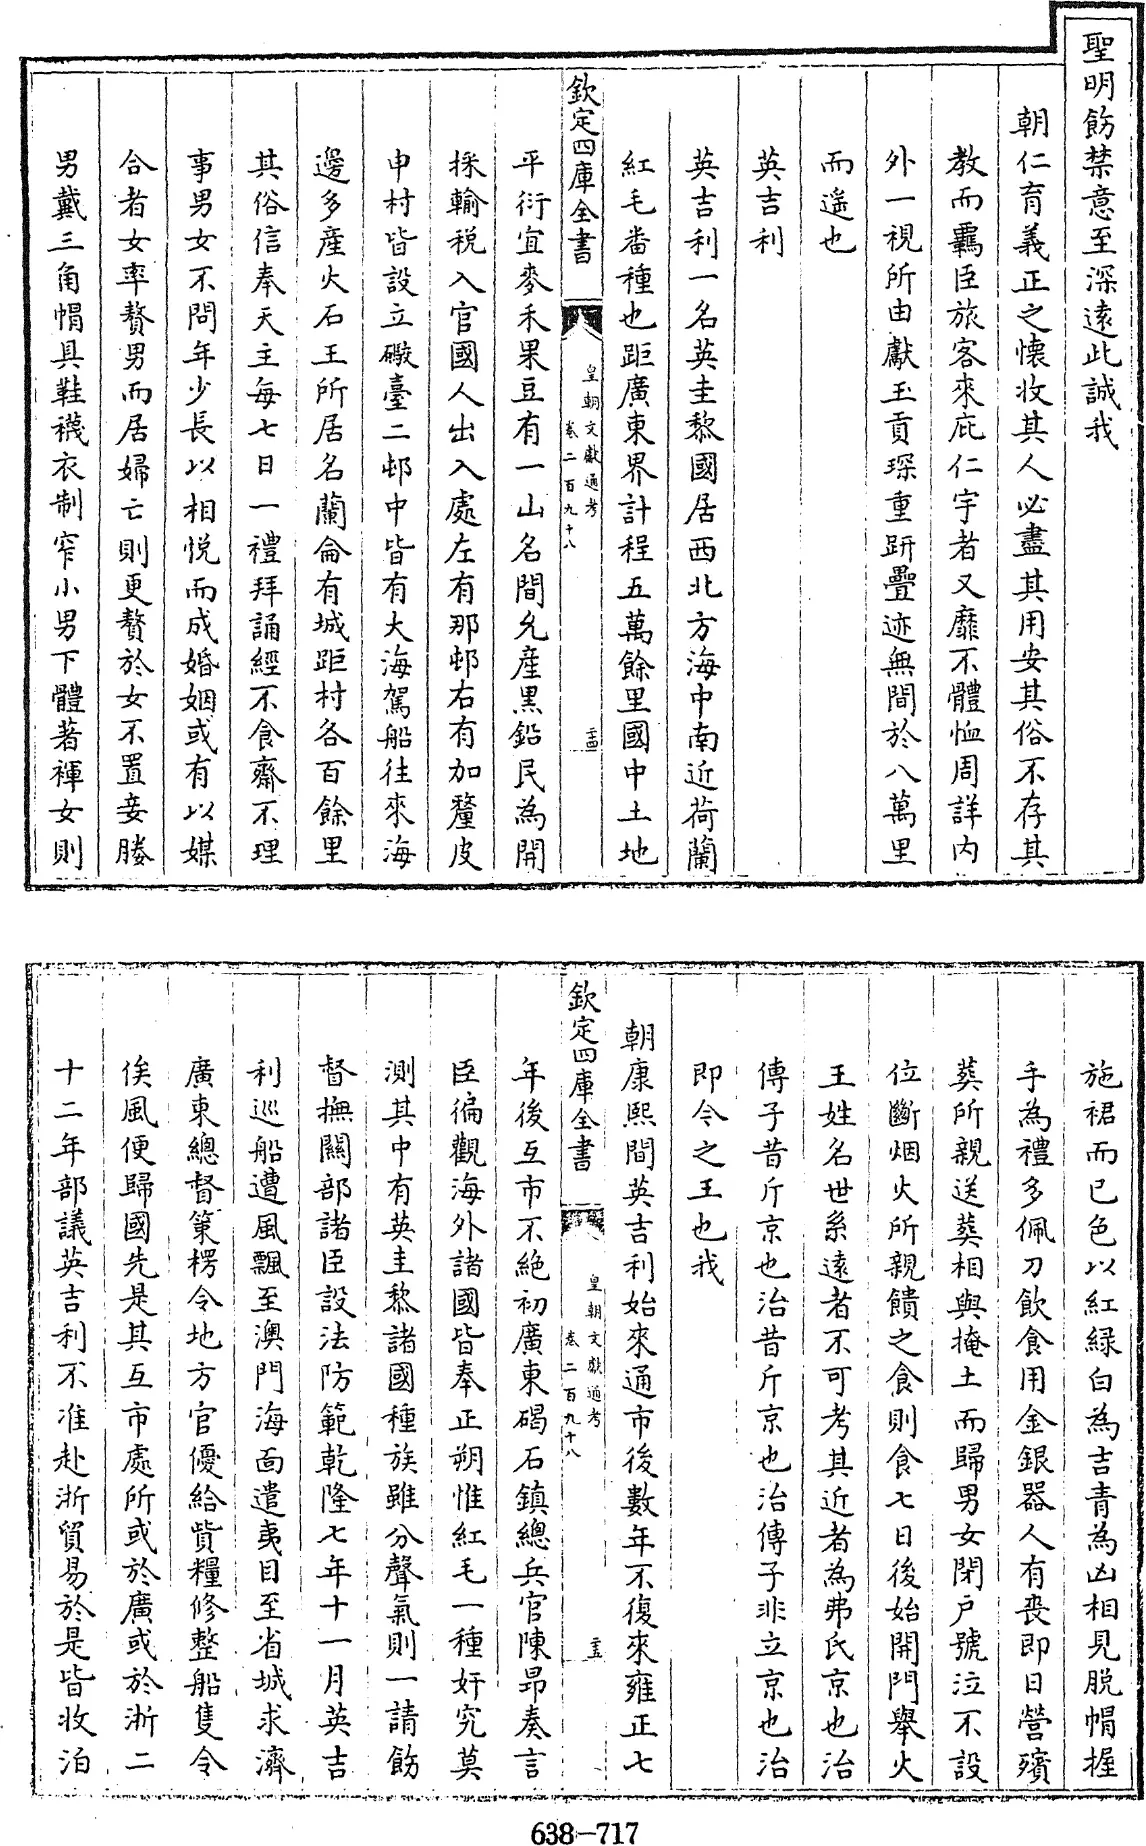 聖明飭禁意至深遠此誠我
朝仁育義正之懷收其人必盡其用安其俗不存其
教而羈臣旅客來庇仁宇者又靡不體恤周詳內
外一視所由獻玉貢琛重趼疊迹無間於八萬里
而遥也
英吉利
英吉利一名英圭黎國居西北方海中南近荷蘭
紅毛番種也距廣東界計程五萬餘里國中土地
欽定四庫全書
皇朝文獻通考
卷二百九十八
平衍宜麥禾果豆有一山名間允產黑鉛民為開
採輸税入官國人出入處左有那村右有加釐皮
申村皆設立礮臺二村中皆有大海駕船往來海
邊多產火石王所居名蘭侖有城距村各百餘里
其俗信奉天主每七日一禮拜誦經不食齋不理
事男女不問年少長以相悅而成婚姻或有以媒
合者女率贅男而居婦亡則更贅於女不置妾媵
男戴三角帽具鞋襪衣制窄小男下體著褌女則
施裙而已色以紅緑白為吉青為凶相見脱帽握
手為禮多佩刀飲食用金銀器人有喪即日營殯
葬所親送葬相與掩土而歸男女閉户號泣不設
位斷烟火所親饋之食則食七日後始開門舉火
王姓名世系遠者不可考其近者為弗氏京也治
傳子昔斤京也治昔斤京也治傳子非立京也治
即今之王也我
朝康熙間英吉利始來通市後數年不復來雍正七
欽定四庫全書
皇朝文獻通考
卷二百九十八
年後互市不絶初廣東碣石鎮總兵官陳昂奏言
臣徧觀海外諸國皆奉正朔惟紅毛一種奸宄莫
測其中有英圭黎諸國種族雖分聲氣則一請飭
督撫關部諸臣設法防範乾隆七年十一月英吉
利巡船遭風飄至澳門海面遣夷目至省城求濟
廣東總督策楞令地方官優給貲糧修整船隻令
俟風便歸國先是其互市處所或於廣或於浙二
十二年部議英吉利不准赴浙貿易於是皆收泊
638-717